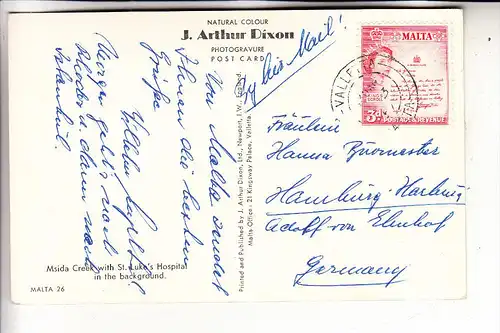 NATURAL COLOUR
J. Arthur Dixon
PHOTOGRAVURE
POST CARD
by Air Mail!
MALTA
VALLETTA
3d
POSTAGE & REVENUE
Von Malta sendet
Ihnen die besten
Grüße
Morgen geht's nach
Rhodos u. dann nach
Istanbul
Fräulein
Hanna Burmester
Hamburg-Harburg
Adolf von Elmhof
Germany
Printed and Published by J. Arthur Dixon, Ltd., Newport, I.W., England.
Malta Office: 21 Kingsway Palace, Valletta.
Msida Creek with St. Luke's Hospital
in the background.
MALTA 26